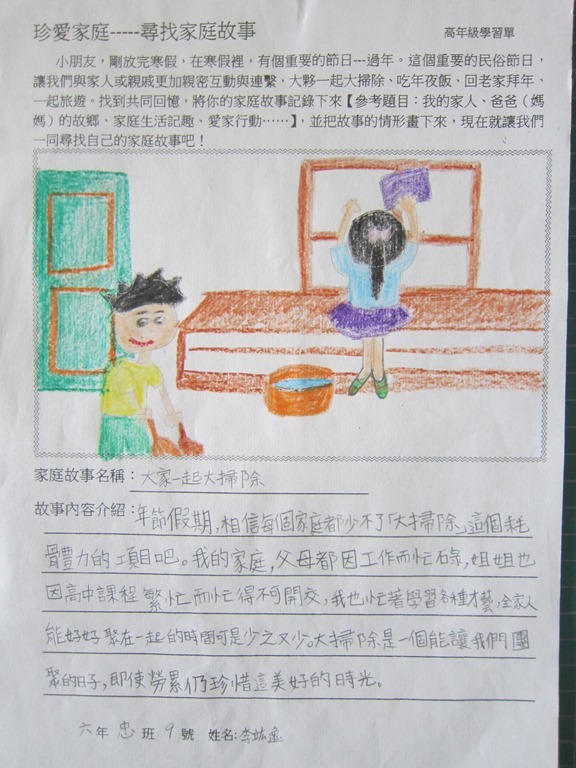 珍愛家庭-----尋找家庭故事
高年級學習單
小朋友，剛放完寒假，在寒假裡，有個重要的節日---過年。這個重要的民俗節日，
讓我們與家人或親戚更加親密互動與連繫，大夥一起大掃除、吃年夜飯、回老家拜年、
一起旅遊。找到共同回憶，將你的家庭故事記錄下來【參考題目：我的家人、爸爸(媽
媽)的故鄉、家庭生活記趣、愛家行動……】，並把故事的情形畫下來，現在就讓我們
一同尋找自己的家庭故事吧！
家庭故事名稱：大家一起大掃除
故事內容介紹：年節假期，相信每個家庭都少不了「大掃除」這個耗
體力的項目吧。我的家庭，父母都因工作而忙碌，姐姐也
因高中課程繁忙而忙得不可開交，我也忙著學習各種才藝，全家人
能好好聚在一起的時間可是少之又少。大掃除是一個能讓我們團
聚的日子，即使勞累仍珍惜這美好的時光。
六年忠班9號 姓名:李